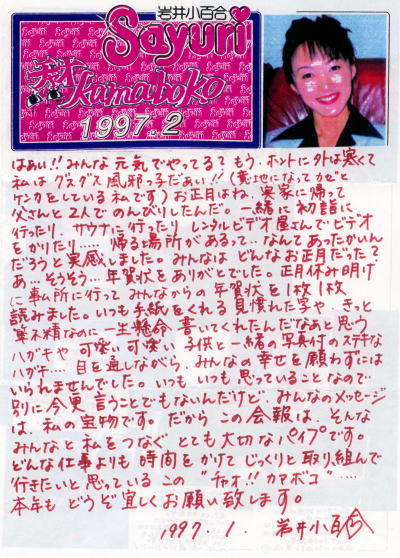 岩井小百合
Sayuri
Kamaboko
1997.2
はあい!!みんな元気でやってる?もう、ホントに外は寒くて
私はグズグズ風邪っ子だあい!!(意地になってカゼと
ケンカをしている私です)お正月はね、実家に帰って
父さんと2人でのんびりしたんだ。一緒に初詣に
行ったり、サウナに行ったりレンタルビデオ屋さんでビデオ
をかりたり‥‥帰る場所があるって‥なんてあったかいん
だろうと実感しました。みんなはどんなお正月だった?
あ…そうそう…年賀状をありがとでした。正月休み明け
に事ム所に行って みんなからの年賀状を1枚1枚
読みました。いつも手紙をくれる見慣れた字や、きっと
筆不精なのに一生懸命書いてくれたんだなあと思う
ハガキや可愛い可愛い子供と一緒の写真付のステキな
ハガキ‥‥目を通しながら、みんなの幸せを願わずには
いられませんでした。いつもいつも思っていることなので
別に今更言うことでもないんだけど、みんなのメッセージ
は、私の宝物です。だから この会報は、そんな
みんなと私をつなぐ とても大切なパイプです。
どんな仕事よりも時間をかけてじっくりと取り組んで
行きたいと思っているこの"チャオ!!カマボコ"‥‥
本年も どうぞ宜しくお願い致します。
1997.1. 岩井小百合